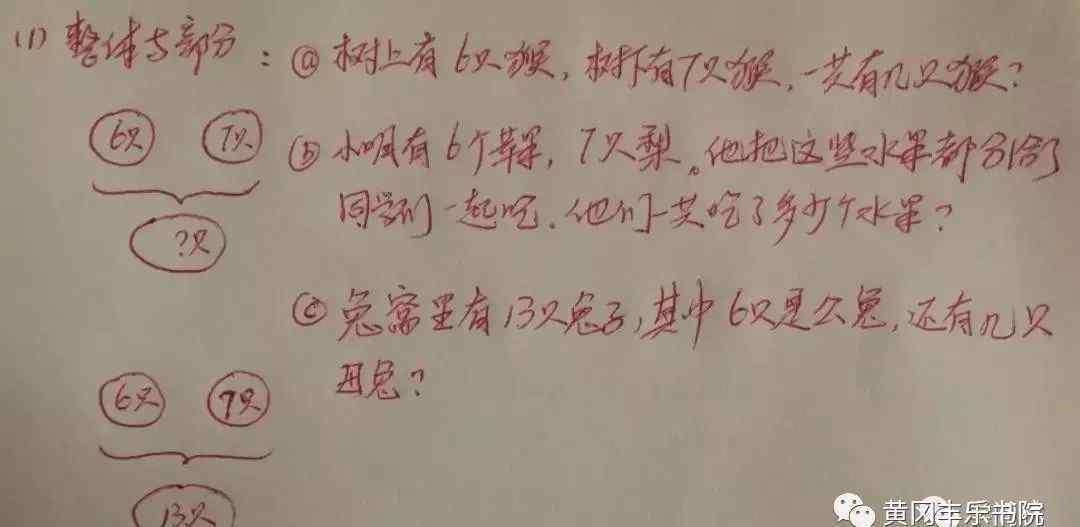 (1) 整体与部分：ⓐ 树上有6只猴，树下有7只猴，一共有几只猴？
6只 7只
ⓑ 小明有6个苹果，7只梨。他把这些水果都分给了
同学们一起吃，他们一共吃了多少个水果？
?只
ⓒ 兔窝里有13只兔子，其中6只是公兔，还有几只
母兔？
6只 7只
13只
黄冈丰乐书院